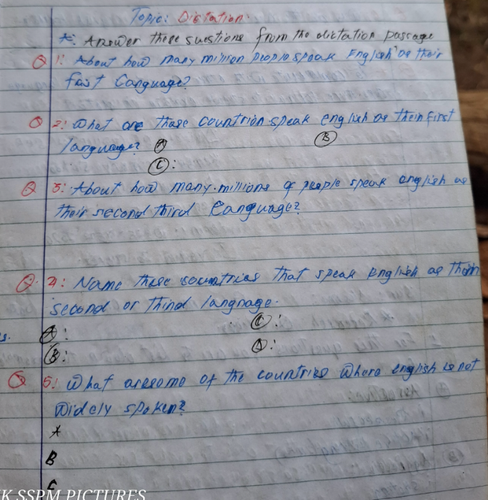 Topic: Dictation
* Answer these questions from the dictation passage
Q 1: About how many million people speak English as their
fast Language?
Q 2: What are those countries speak english as their first
language? A B
C:
Q 3: About how many millions of people speak english as
their second third Language?
Q 4: Name these countries that speak English as their
second or third language.
A: C:
B: D:
Q 5: What are some of the countries where english is not
widely spoken?
A
B
C
K.SSPM PICTURES